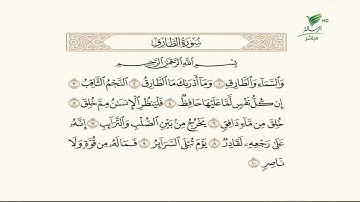 HD
الرسالة
مباشر
سُورَةُ الطَّارِقِ
بِسْمِ اللَّهِ الرَّحْمَٰنِ الرَّحِيمِ
وَالسَّمَاءِ وَالطَّارِقِ ١ وَمَا أَدْرَىٰكَ مَا الطَّارِقُ ٢ النَّجْمُ الثَّاقِبُ ٣
إِن كُلُّ نَفْسٍ لَّمَّا عَلَيْهَا حَافِظٌ ٤ فَلْيَنظُرِ الْإِنسَٰنُ مِمَّ خُلِقَ ٥
خُلِقَ مِن مَّاءٍ دَافِقٍ ٦ يَخْرُجُ مِنۢ بَيْنِ الصُّلْبِ وَالتَّرَائِبِ ٧ إِنَّهُ
عَلَىٰ رَجْعِهِ لَقَادِرٌ ٨ يَوْمَ تُبْلَى السَّرَائِرُ ٩ فَمَا لَهُ مِن قُوَّةٍ وَلَا
نَاصِرٍ ١٠